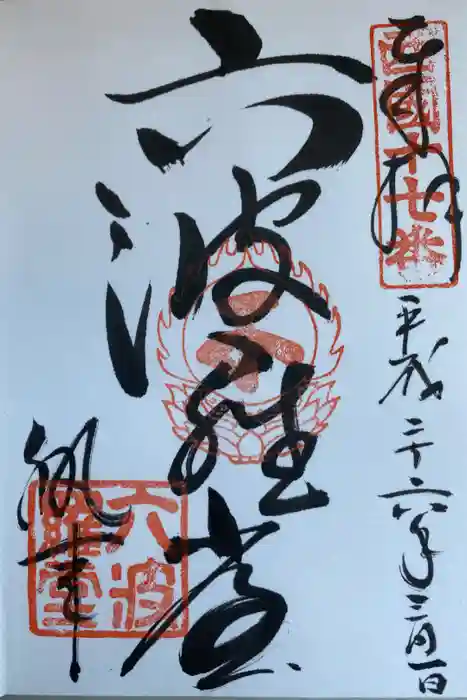 奉拝
西國十七番
平成二十六年三月一日
六波羅堂
執事
六波羅堂